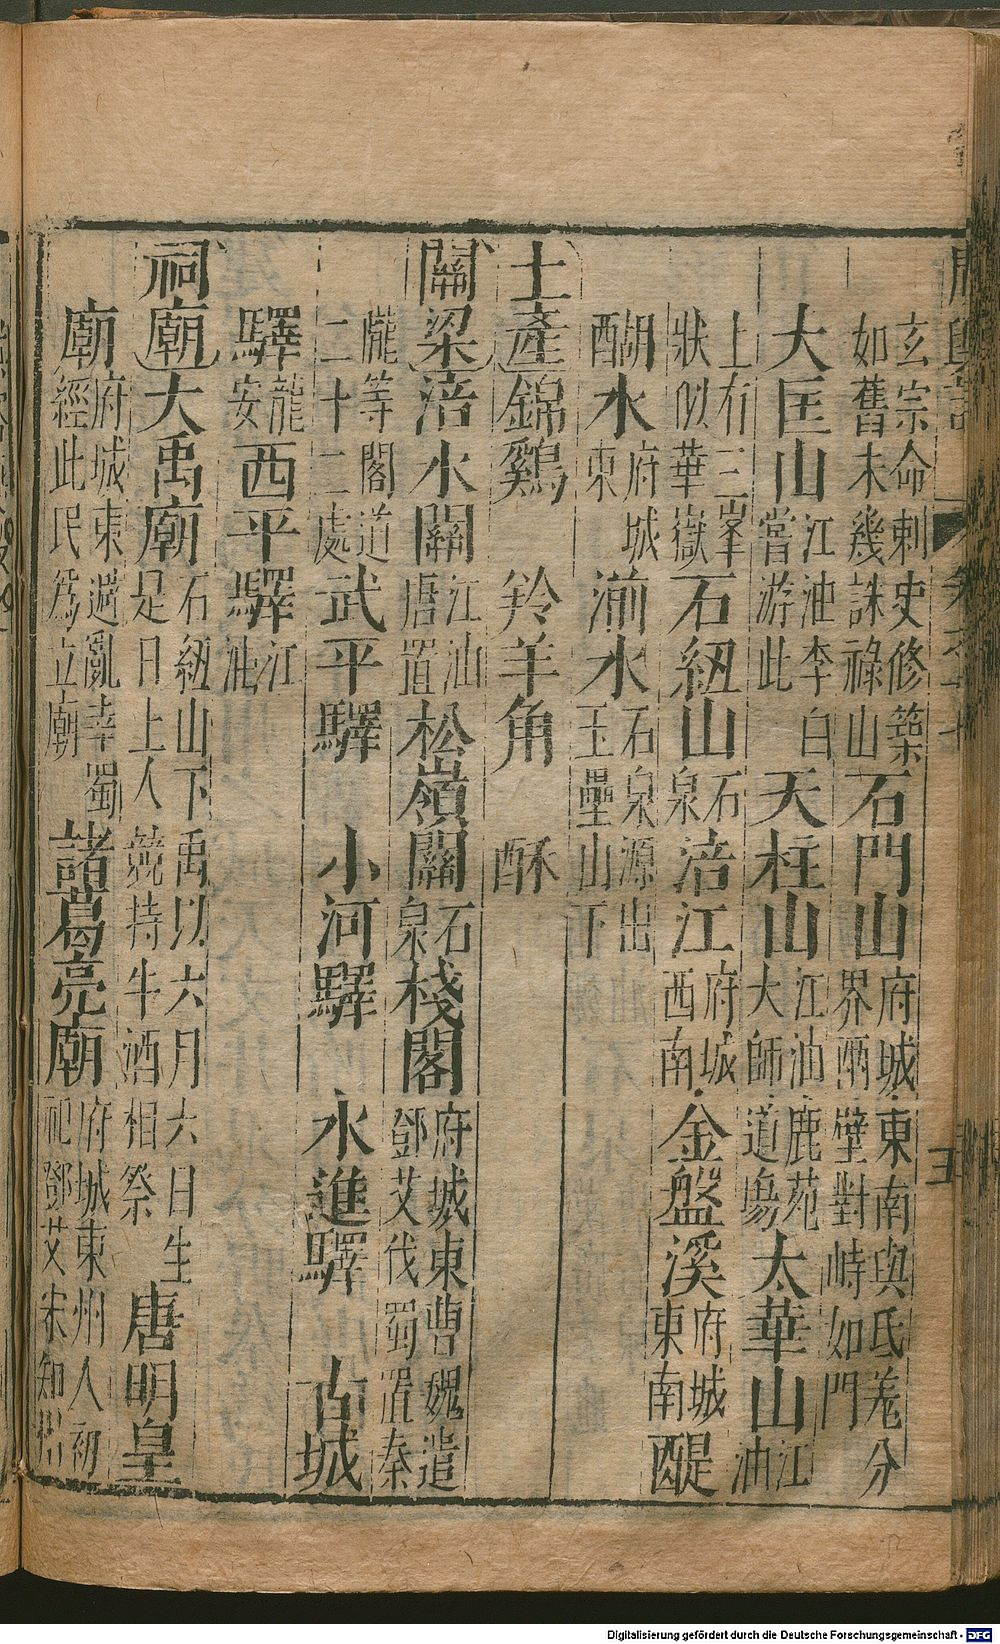 玄宗命刺史修築如舊未幾誅祿山石門山府城東南與氐羗分界兩壁對峙如門
大匡山江油李白嘗游此天柱山江油鹿苑大師道塲太華山江油
上有三峯狀似華嶽石紐山石泉涪江府城西南金盤溪府城東南醍
醐水府城東湔水石泉源出玉壘山下
土產錦鷄 羚羊角 酥
關梁涪水關江油唐置松嶺關石泉棧閣府城東曹魏遣鄧艾伐蜀置秦
隴等閣道二十二處武平驛 小河驛 水進驛 古城
驛龍安西平驛江油
祠廟大禹廟石紐山下禹以六月六日生是日上人競持牛酒相祭唐明皇
廟府城東遇亂幸蜀經此民爲立廟諸葛亮廟府城東州人初祀鄧艾宋知
五
Digitalisierung gefördert durch die Deutsche Forschungsgemeinschaft - DFG